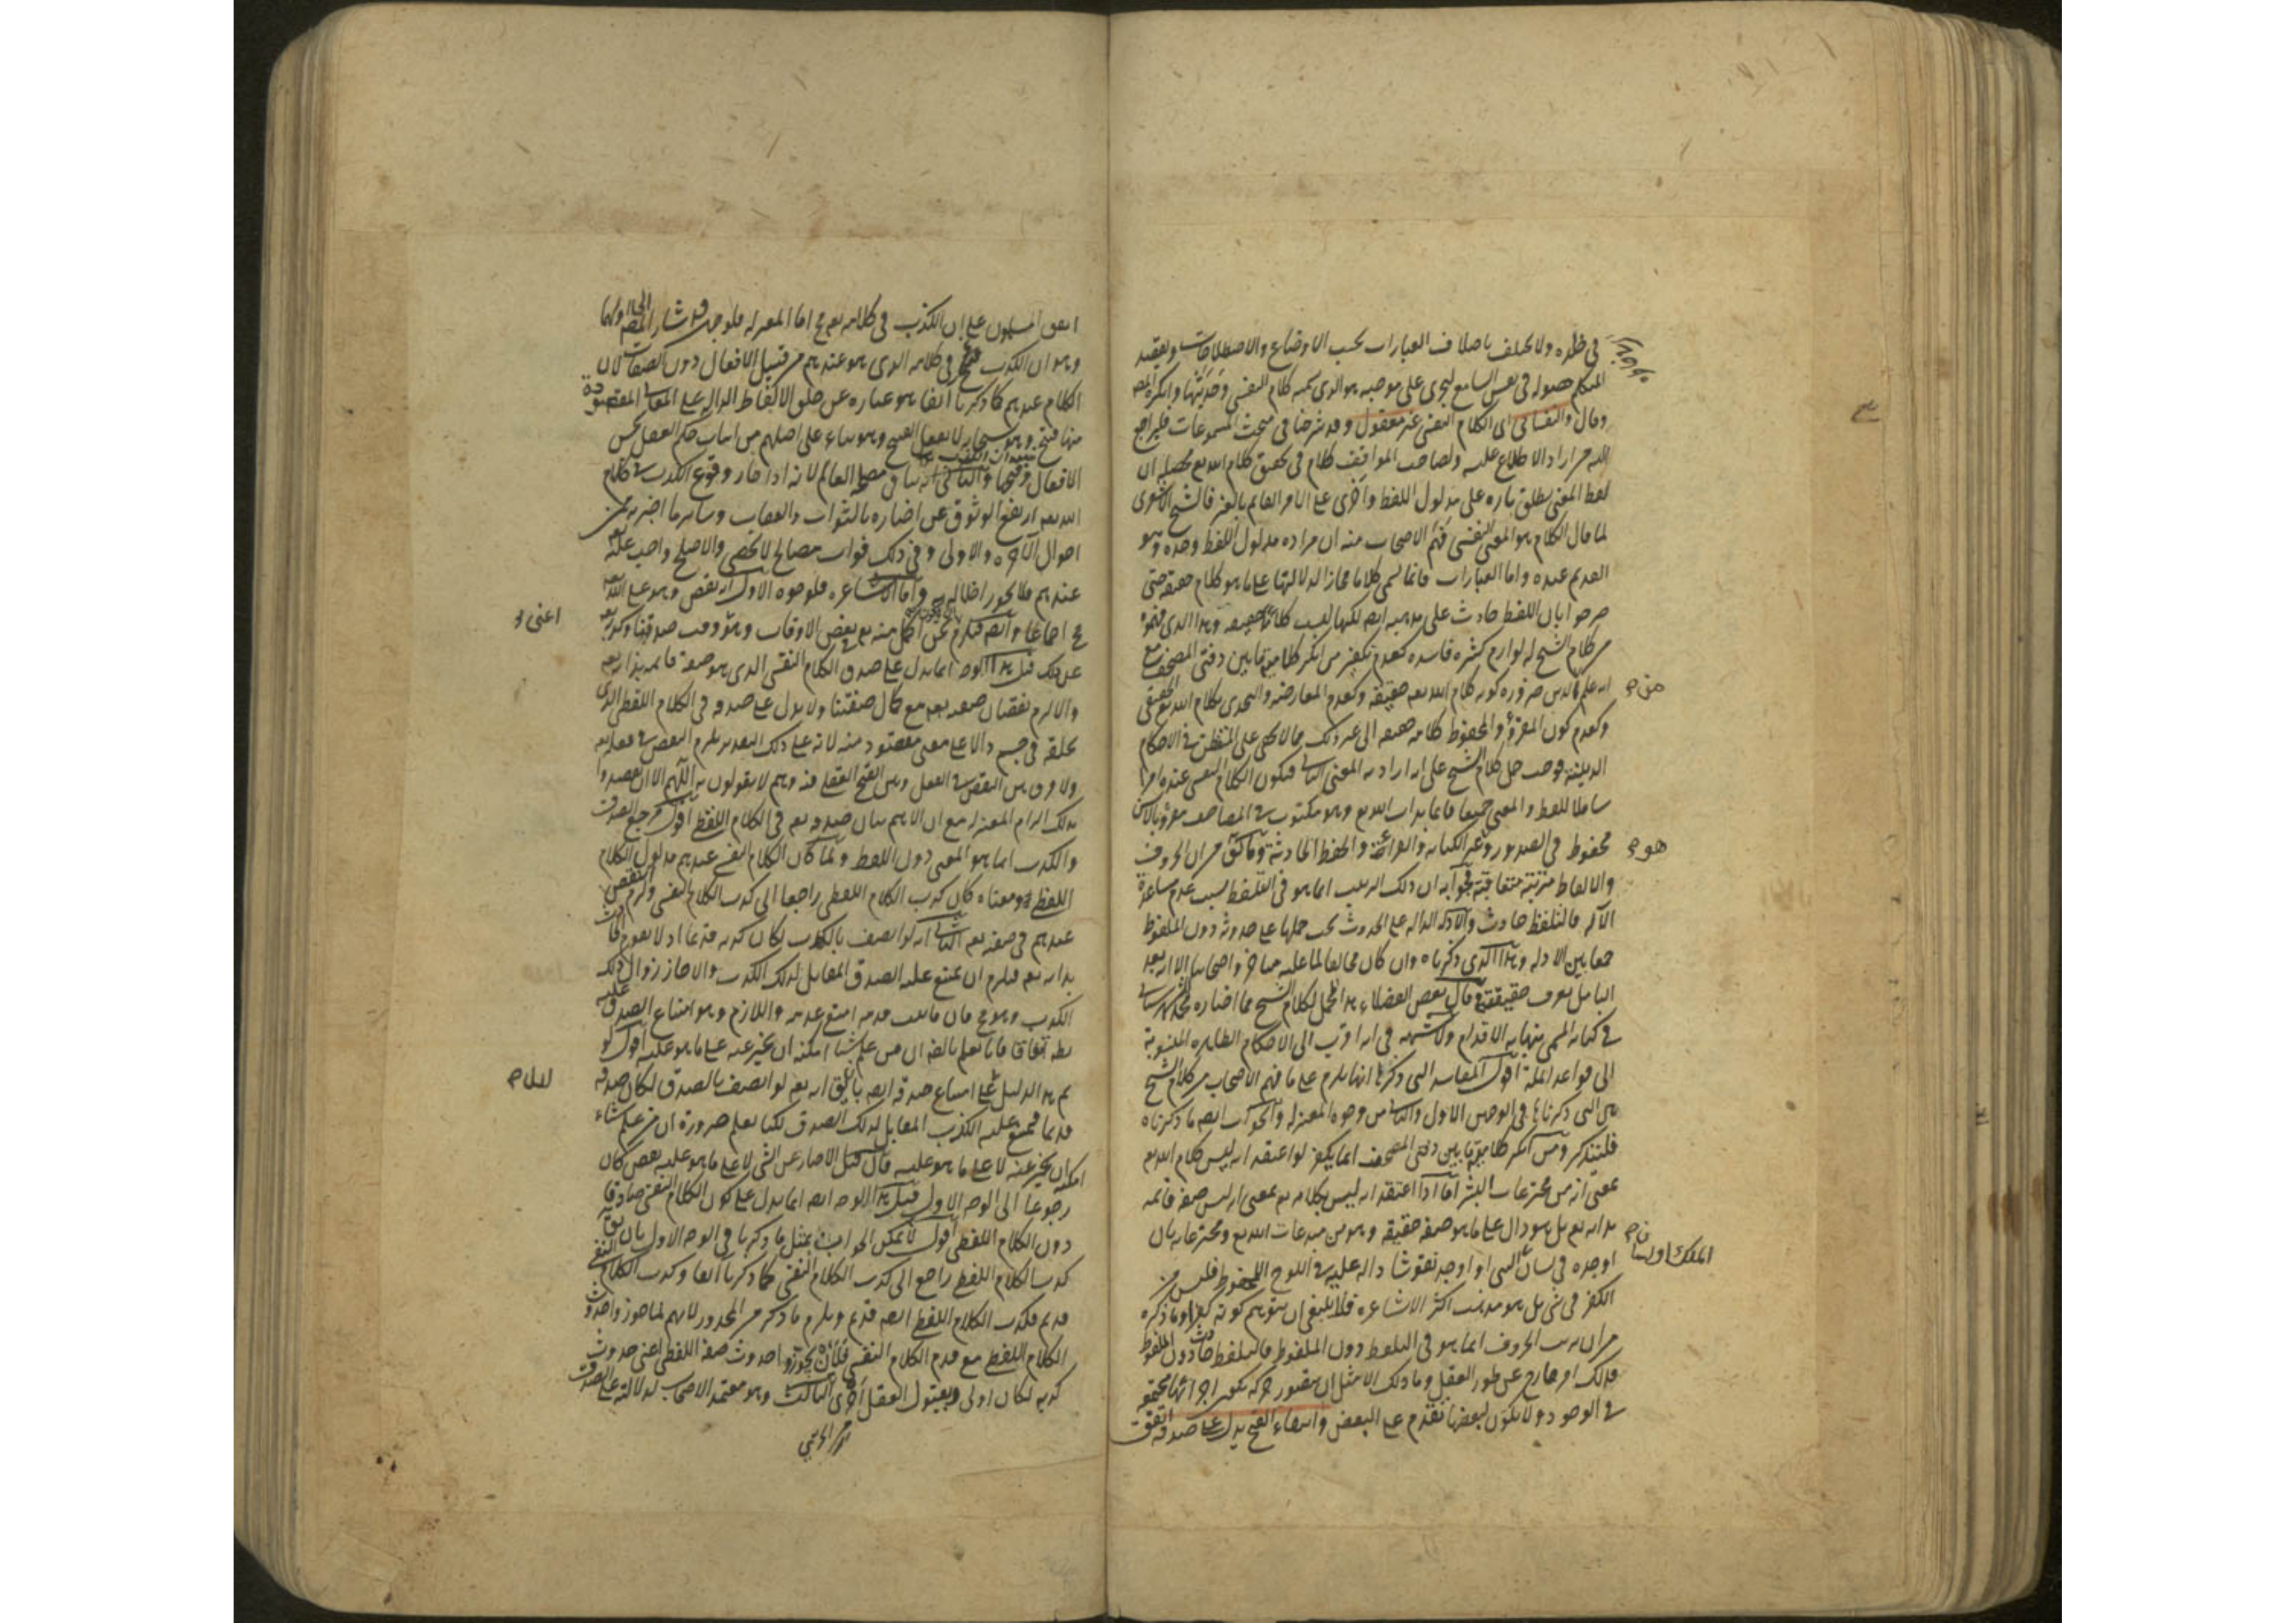 في خلده ولا يختلف باختلاف العبارات بحسب الاوضاع والاصطلاحات ويقصد
المتكلم حصوله في نفس السامع ليجري على موجبه هو الذي نسميه كلام النفس وحديثها وانكره المص
وقال والنفساني اي الكلام النفسي غير معقول وقد شرحنا في مبحث المسموعات فليراجع
اليه من اراد الاطلاع عليه ولصاحب المواقف كلام في تحقيق كلام الله تع محصله ان
لفظ المعنى يطلق تاره على مدلول اللفظ واخرى على الامر القايم بالغير فالشيخ الاشعري
لما قال الكلام هو المعنى النفسي فهم الاصحاب منه ان مراده مدلول اللفظ وحده وهو
القديم عنده واما العبارات فانما تسمى كلاما مجازا لدلالتها على ما هو كلام حقيقة حتى
صرحوا بان اللفظ حادث على مذهبه ايضا لكنها ليست كلامه حقيقه وهذا الذي فهموه
من كلام الشيخ له لوازم كثيره فاسده كعدم تكفير من انكر كلامية ما بين دفتي المصحف مع
انه علم من الدين ضروره كونه كلام الله تعه حقيقة وكعدم المعارضه والتحدي بكلام الله تع الحقيقي
وكعدم كون المقروء والمحفوظ كلامه حقيقه الى غير ذلك مما لا يخفى على المتفطن في الاحكام
الدينية فوجب حمل كلام الشيخ على انه اراد به المعنى الثاني فيكون الكلام النفسي عنده امرا
شاملا للفظ والمعنى جميعا قايما بذات الله تع وهو مكتوب في المصاحف مقروء بالالسن
محفوظ في الصدور وهو غير الكتابه والقراءة والحفظ الحادثة وما يق من ان الحروف
والالفاظ مترتبة متعاقبة فجوابه ان ذلك الترتيب انما هو في التلفظ بسبب عدم مساعدة
الآله فالتلفظ حادث والادله الداله على الحدوث يجب حملها على حدوثه دون الملفوظ
جمعا بين الادله وهذا الذي ذكرناه وان كان مخالفا لما عليه متاخروا اصحابنا الا انه بعد
التامل يعرف حقيقته وقال بعض الفضلاء هذا المحمل لكلام الشيخ مما اختاره محمد الشهرستاني
في كتابه المسمى بنهاية الاقدام ولا شبهه في انه اقرب الى الاحكام الظاهره المنسوبة
الى قواعد الملة اقول المفاسد التي ذكرها انها يلزم على ما فهم الاصحاب من كلام الشيخ
هي التي ذكرناها في الوجهين الاول والثاني من وجوه المعتزله والجواب ايضا ما ذكرناه
فلنتذكر ومن انكر كلامية ما بين دفتي المصحف انما يكفر لو اعتقد انه ليس كلام الله تع
بمعنى انه من مخترعات البشر اما اذا اعتقد انه ليس بكلامه تع بمعنى انه ليس صفة قائمه
بذاته تع بل هو دال على ما هو صفه حقيقه وهو من مبدعات الله تع ومخترعاته بان
اوجده في لسان النبي او اوجد نقوشا داله عليه في اللوح المحفوظ فليس من
الكفر في شيء بل هو مذهب اكثر الاشاعره فلا ينبغي ان يتوهم كونه كفرا وما ذكره
من ان ترتب الحروف انما هو في التلفظ دون الملفوظ فالتلفظ حادث دون الملفوظ
فذلك امر خارج عن طور العقل وما ذلك الا مثل ان يتصور حركه تكون اجزائها مجتمعه
في الوجود ولا يكون لبعضها تقدم على البعض وانتفاء القبح يدل على صدقه اتفق
هو
الملك او لسان
اتفق المسلمون على ان الكذب في كلامه تع مح اما المعتزله فلوجهين اشار المص الى اولهما
وهو ان الكذب قبيح في كلامه الذي هو عندهم من قبيل الافعال دون الصفات لان
الكلام عندهم كما ذكرنا آنفا هو عباره عن خلق الالفاظ الداله على المعاني المقصودة
منها قبيح وهو سبحانه لا يفعل القبيح وهو بناء على اصلهم من اثبات حكم العقل بحسن
الافعال وقبحها والثاني انه ينافي مصلحة العالم لانه اذا جاز وقوع الكذب في كلام
الله تعه ارتفع الوثوق عن اخباره بالثواب والعقاب وساير ما اخبر به من
احوال الآخره والاولى وفي ذلك فوات مصالح لا تحصى والاصلح واجب عليه
عندهم فلا يجوز اخلاله به واما الاشاعره فلوجوه الاول انه نقص وهو على الله تعه
مح اجماعا وايضا فيلزم ان نكون نحن اكمل منه تع في بعض الاوقات وهو وقت صدقنا وكذبه تعه
عن ذلك قيل هذا الوجه انما يدل على صدق الكلام النفسي الذي هو صفة قائمه بذاته تعه
والا لزم نقصان صفته تعه مع كمال صفتنا ولا يدل على صدقه في الكلام اللفظي الذي
يخلقه في جسم دالا على معنى مقصود منه لانه على ذلك التقدير يلزم النقص في فعله تعه
ولا فرق بين النقص في الفعل وبين القبح العقلي فيه وهم لا يقولون به اللهم الا ان يقصدوا
بذلك الزام المعتزله مع ان الاهم بيان صدقه تع في الكلام اللفظي اقول مرجع الصدق
والكذب انما هو المعنى دون اللفظ ولما كان الكلام النفسي عندهم مدلول الكلام
اللفظي ومعناه كان كذب الكلام اللفظي راجعا الى كذب الكلام النفسي ولزم النقص
عندهم في صفته تعه الثاني انه لو اتصف بالكذب لكان كذبه قديما اذ لا يقوم الحادث
بذاته تع فيلزم ان يمتنع عليه الصدق المقابل لذلك الكذب والا جاز زوال ذلك
الكذب وهو مح فان ما ثبت قدمه امتنع عدمه واللازم وهو امتناع الصدق عليه
بط اتفاقا فانا نعلم بالضه ان من علم شيئا امكنه ان يخبر عنه على ما هو عليه اقول لو
تم هذا الدليل لدل على امتناع صدقه ايضا بان يق انه تع لو اتصف بالصدق لكان صدقه
قديما فيمتنع عليه الكذب المقابل لذلك الصدق لكنا نعلم ضرورة ان من علم شيئا
امكنه ان يخبر عنه لا على ما هو عليه فان قيل الاخبار عن الشي لا على ما هو عليه نقص كان
رجوعا الى الوجه الاول قيل هذا الوجه ايضا انما يدل على كون الكلام النفسي صادقا
دون الكلام اللفظي اقول لا يمكن الجواب بمثل ما ذكرنا في الوجه الاول بان يق
كذب الكلام اللفظي راجع الى كذب الكلام النفسي كما ذكرنا آنفا وكذب الكلام النفسي
قديم فكذب الكلام اللفظي ايضا قديم ويلزم ما ذكر من المحذور لانهم لما جوزوا حدوث
الكلام اللفظي مع قدم الكلام النفسي فلأن يجوزوا حدوث صفة اللفظي اعني حدوث
كذبه لكان اولى وبقبول العقل احرى الثالث وهو معتمد الاصحاب لدلالته على الصدق
اعني